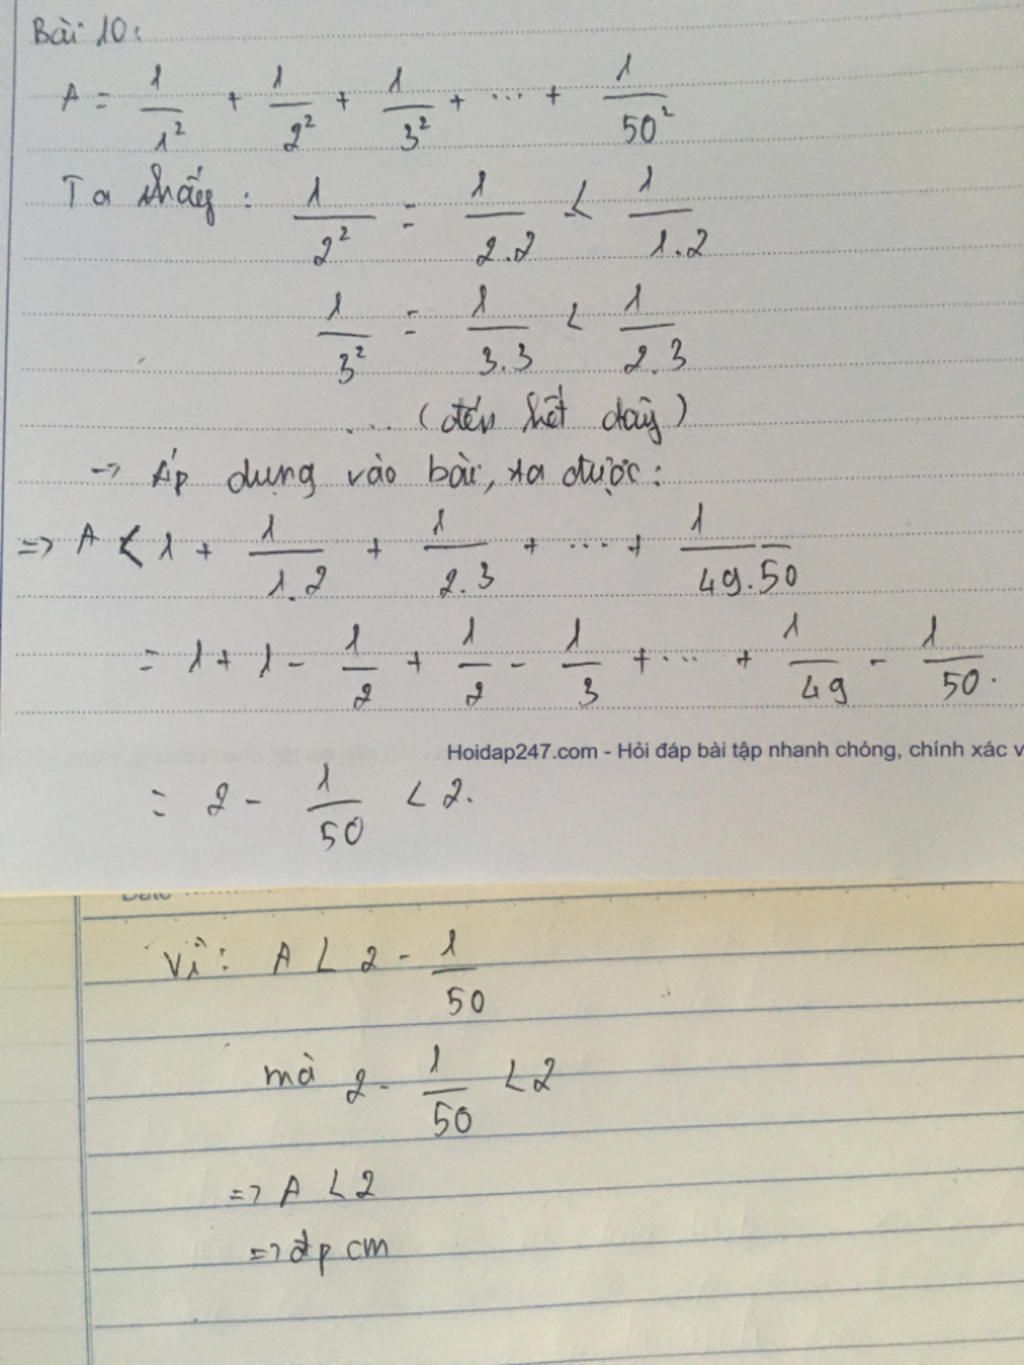 Bài 10:
A = 1/1² + 1/2² + 1/3² + ... + 1/50²
Ta thấy: 1/2² = 1/2.2 < 1/1.2
1/3² = 1/3.3 < 1/2.3
... (đến hết dãy)
→ Áp dụng vào bài, ta được:
=> A < 1 + 1/1.2 + 1/2.3 + ... + 1/49.50
= 1 + 1 - 1/2 + 1/2 - 1/3 + ... + 1/49 - 1/50.
Hoidap247.com - Hỏi đáp bài tập nhanh chóng, chính xác v
= 2 - 1/50 < 2.
Vì: A < 2 - 1/50
mà 2 - 1/50 < 2
=> A < 2
=> đpcm